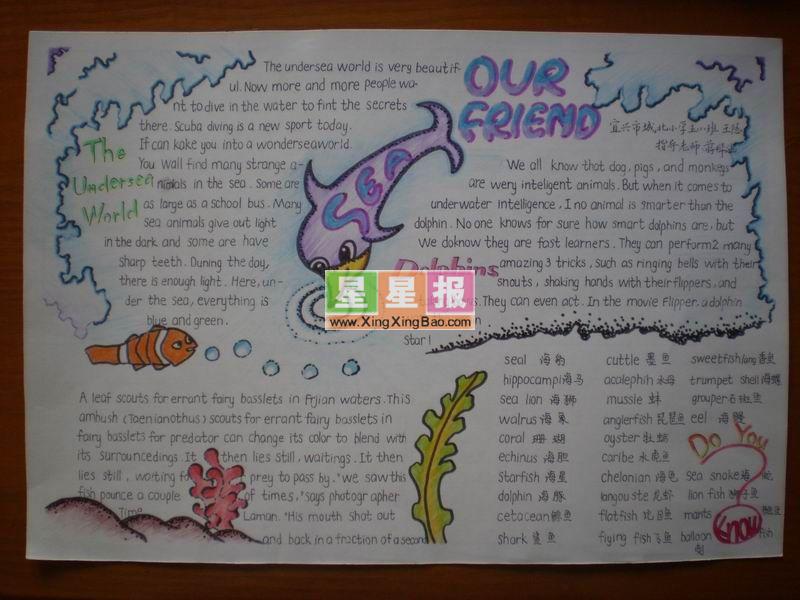 The undersea world is very beautif-
ul. Now more and more people wa-
nt to dive in the water to fint the secrets
there. Scuba diving is a new sport today.
If can kake you into a wonderseaworld.
You wall find many strange a-
nimals in the sea. Some are
as large as a school bus. Many
sea animals give out light
in the dark and some are have
sharp teeth. During the day,
there is enough light. Here, un-
der the sea, everything is
blue and green.
The
Undersea
World
OUR
FRIEND
SEA
宜兴市城北小学五八班
指导老师
We all know that dog, pigs, and monkeys
are wery inteligent animals. But when it comes to
underwater intelligence, I no animal is smarter than the
dolphin. No one knows for sure how smart dolphins are, but
We doknow they are fast learners. They can perform2 many
Dolphins
amazing 3 tricks, such as ringing bells with their
snouts, shaking hands with their flippers, and
They can even act. In the movie Flipper, a dolphin
Star!
星星报
www.XingXingBao.com
A leaf scouts for errant fairy basslets in Fijian waters. This
ambush (Taenianothus) scouts for errant fairy basslets in
fairy basslets for predator can change its color to blend with
its surroundings. It then lies still, waitings. It then
lies still, waiting fo prey to pass by. "we saw this
fish pounce a couple of times," says photographer
Time Laman. "His mouth shot out
and back in a fraction of a second
seal 海豹
hippocampi 海马
sea lion 海狮
walrus 海象
coral 珊瑚
echinus 海胆
starfish 海星
dolphin 海豚
cetacean 鲸鱼
shark 鲨鱼
cuttle 墨鱼
acalephih 水母
mussle 蚌
anglerfish 琵琶鱼
oyster 牡蛎
caribe 水虎鱼
chelonian 海龟
langouste 龙虾
flatfish 比目鱼
flying fish 飞鱼
sweetfish 香鱼
trumpet shell 海螺
grouper 石斑鱼
eel 海鳗
Sea snake 海蛇
lion fish 狮子鱼
mants
balloon fish
Do You
Know